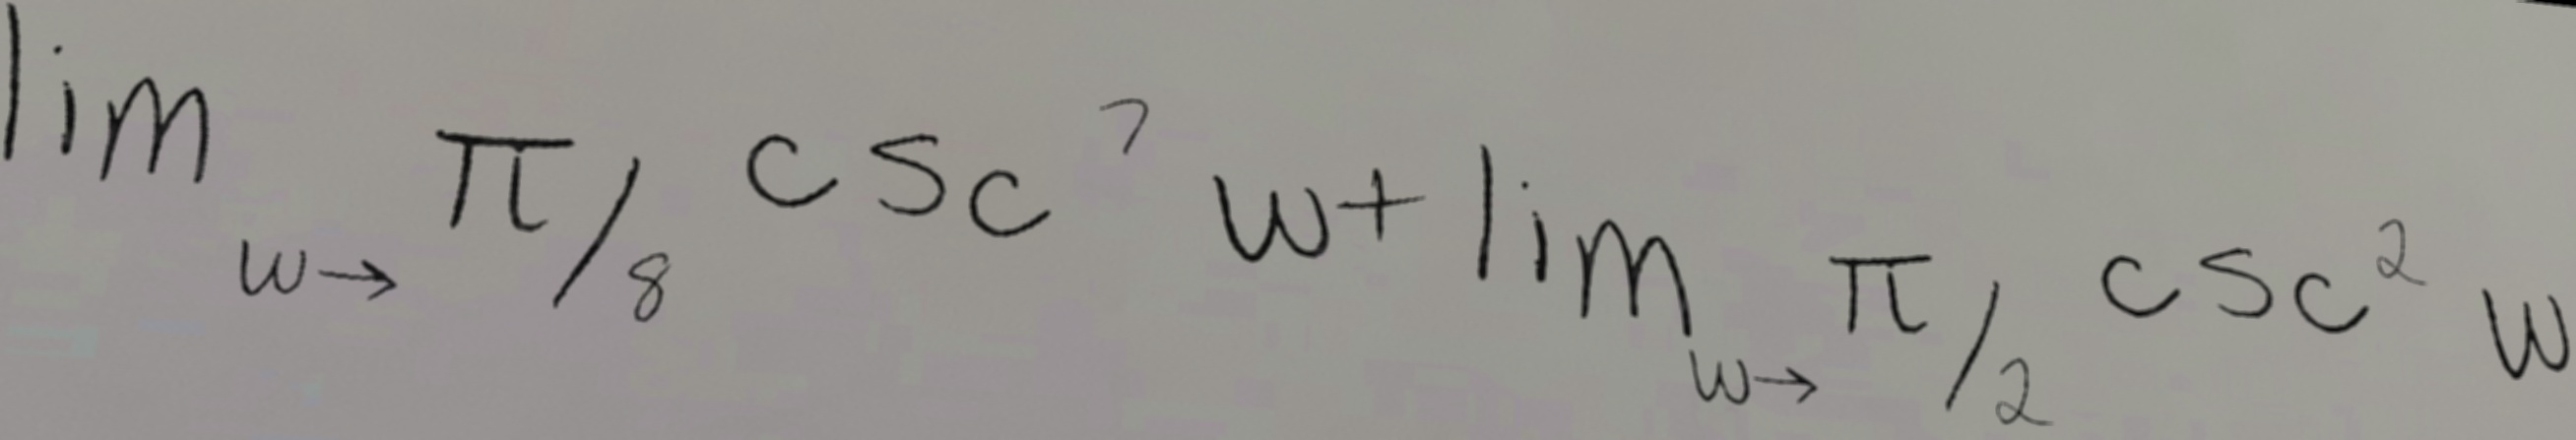 lim w→ π/8 csc⁷ w + lim w→ π/2 csc² w